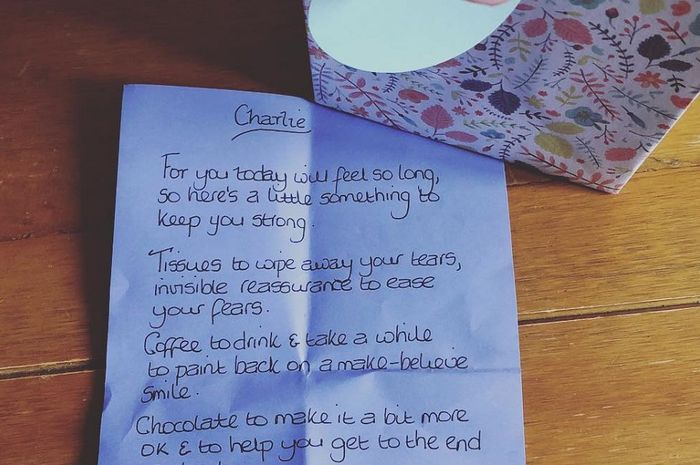 Charlie
For you today will feel so long,
so here's a little something to
keep you strong.
Tissues to wipe away your tears,
invisible reassurance to ease
your fears.
Coffee to drink & take a while
to paint back on a make-believe
smile.
Chocolate to make it a bit more
OK & to help you get to the end